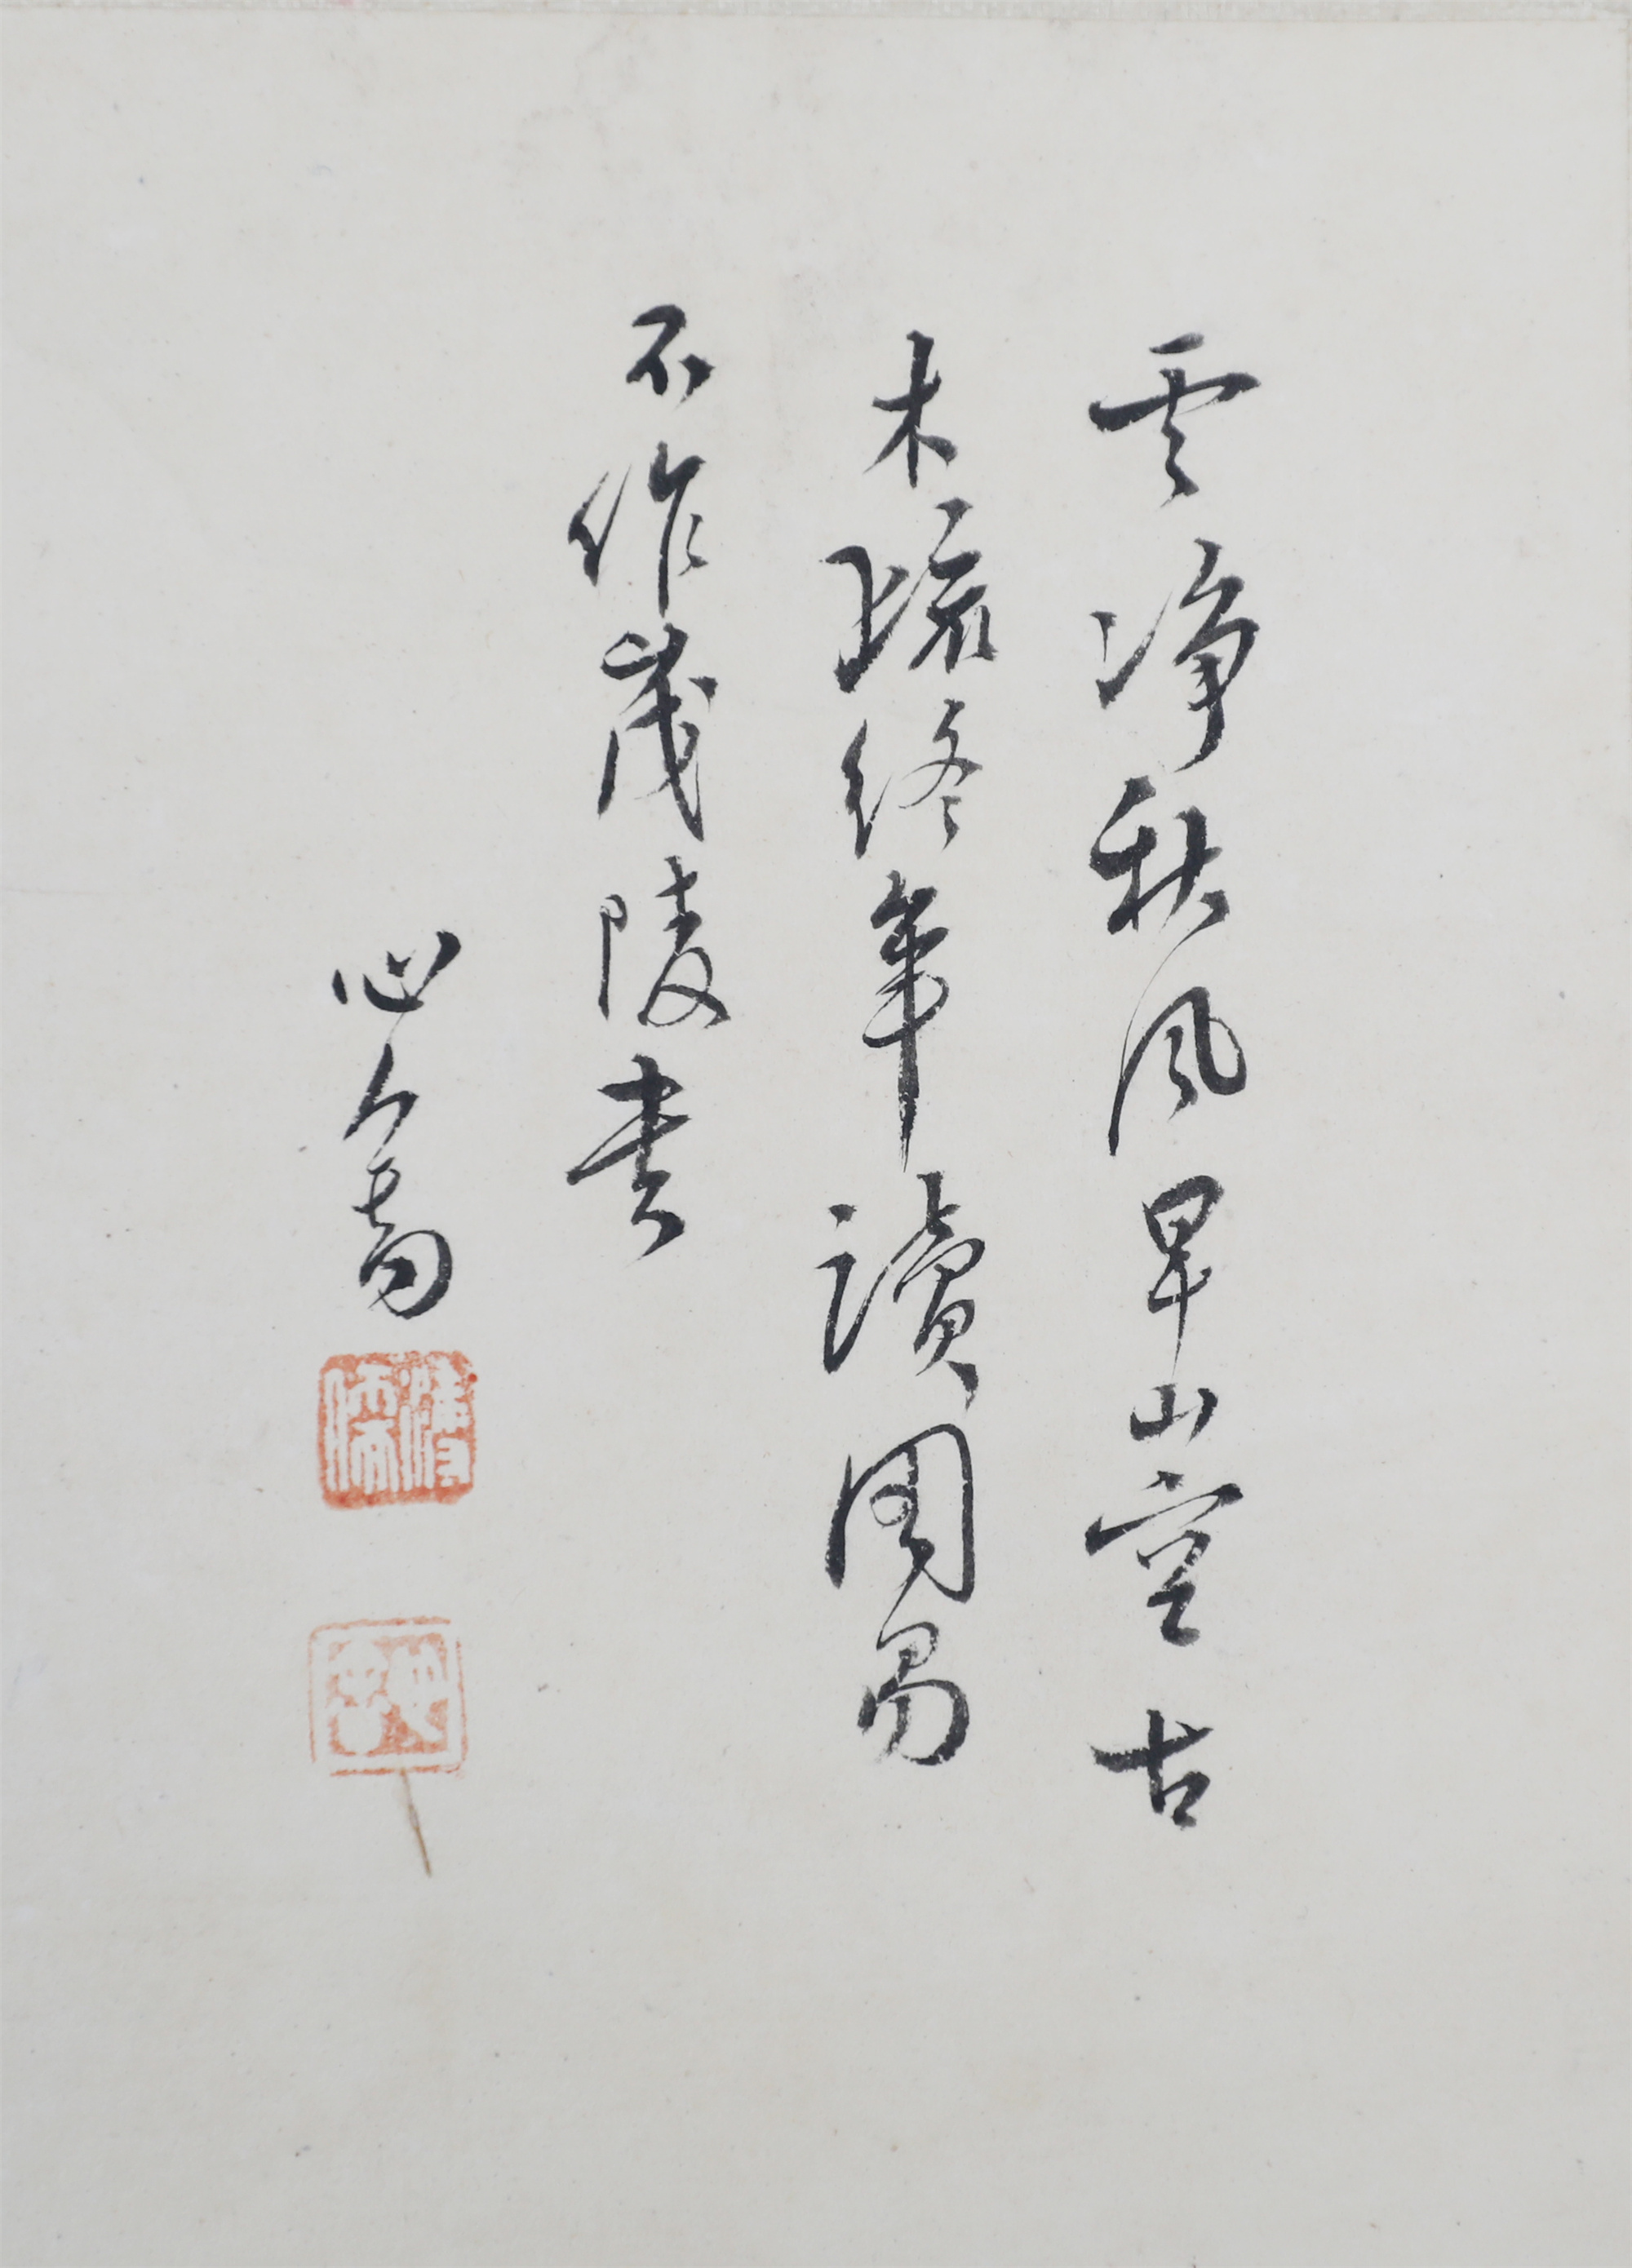 雲淨秋風早山空古
木疏終年讀周易
不作茂陵書
心畬
溥儒